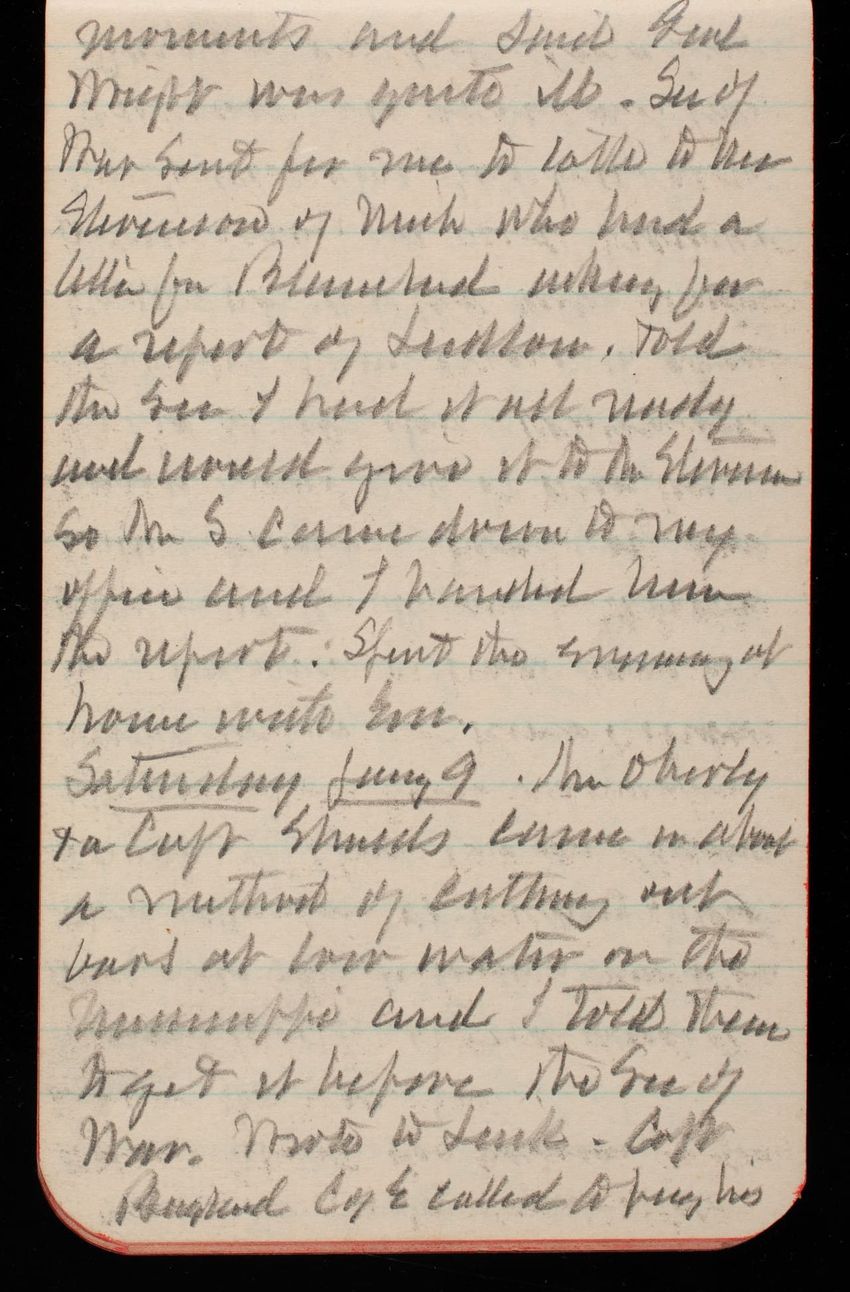 moments and said Genl
Wright was quite ill. Sec of
War sent for me to talk to Mr
Stevenson of Mich who had a
letter for Blanchard asking for
a report of Ludlow. Told
the Sec I had it all ready
and would give it to Mr Stevenson
So Mr S came down to my
office and I handed him
the report. Spent the evening at
home with Em.
Saturday Jany 9. Mr Oberly
+ a Capt Shields came in about
a method of cutting out
bars at low water on the
Mississippi and I told them
to get it before the Sec of
War. Wrote to Lusk - Capt
C of E called to pay his